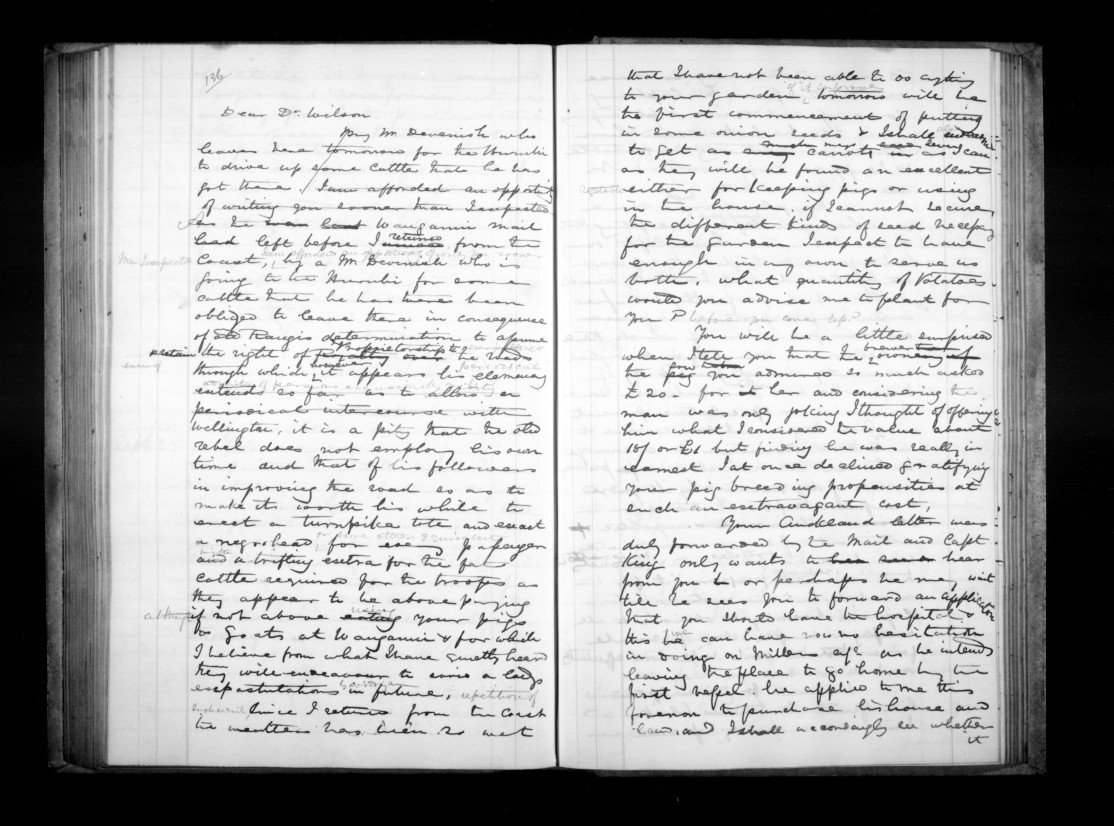 136
Dear Dr. Wilson
By Mr Devenish who
leaves here tomorrow for the Huruhi
to drive up some cattle that he has
got there. I am afforded an opportunity
of writing you sooner than I expected
As the Wanganui mail
had left before I returned from the
Coast, by a Mr Devenish who is
going to the Huruhi for some
cattle that he has there been
obliged to leave there in consequence
of Old Rangis determination to assume
the right of Proprietorship to the roads
through which, however, it appears his clemency
extends so far as to allow an
periodical intercourse with
Wellington, it is a pity that the old
rebel does not employ his own
time and that of his followers
in improving the road so as to
make it worth his while to
erect a turnpike tole and exact
or some other equivalent
a negrohead for every passenger
and a trifling extra for the fat
cattle required for the troops as
they appear to be above paying
although if not above eating your pigs
or Goats at Wanganui & for which
I believe from what I have quietly heard
they will endeavour to save a lady
expostulations in future, repetition of
Since I returned from the Coast
the weather has been so wet
that I have not been able to do anything
to your garden tomorrow will be
the first commencement of putting
in some onion seeds & I shall endeavour
to get as much carrots in as I can
as they will be found an excellent
either for keeping pigs or using
in the house. if I cannot secure
the different kinds of seed necessary
for the Garden I expect to have
enough in my own to serve us
both. What quantity of Potatoes
would you advise me to plant for
you? before you come up?
You will be a little surprised
when I tell you that the owner of
the pig you admired so much asked
£20. for her and considering the
man was only joking I thought of offering
him what I considered the value about
18/ or £1 but finding he was really in
earnest I at once declined gratifying
your pig breeding propensities at
such an extravagant cost,
Your Auckland letter was
duly forwarded by the Mail and Capt
King only wants to hear
from you or perhaps he may wait
till he sees you to forward an application
that you should have the hospital, &
this he can have now no hesitation
in doing on Millers a/c as he intends
leaving the place to go home by the
first vessel. he applied to me this
forenoon to purchase his house and
land, and I shall accordingly see whether
it